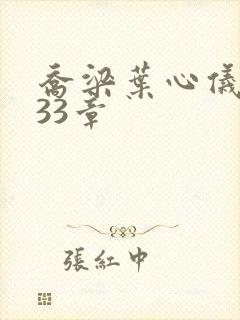 喬梁葉心儀
33章
張紅中